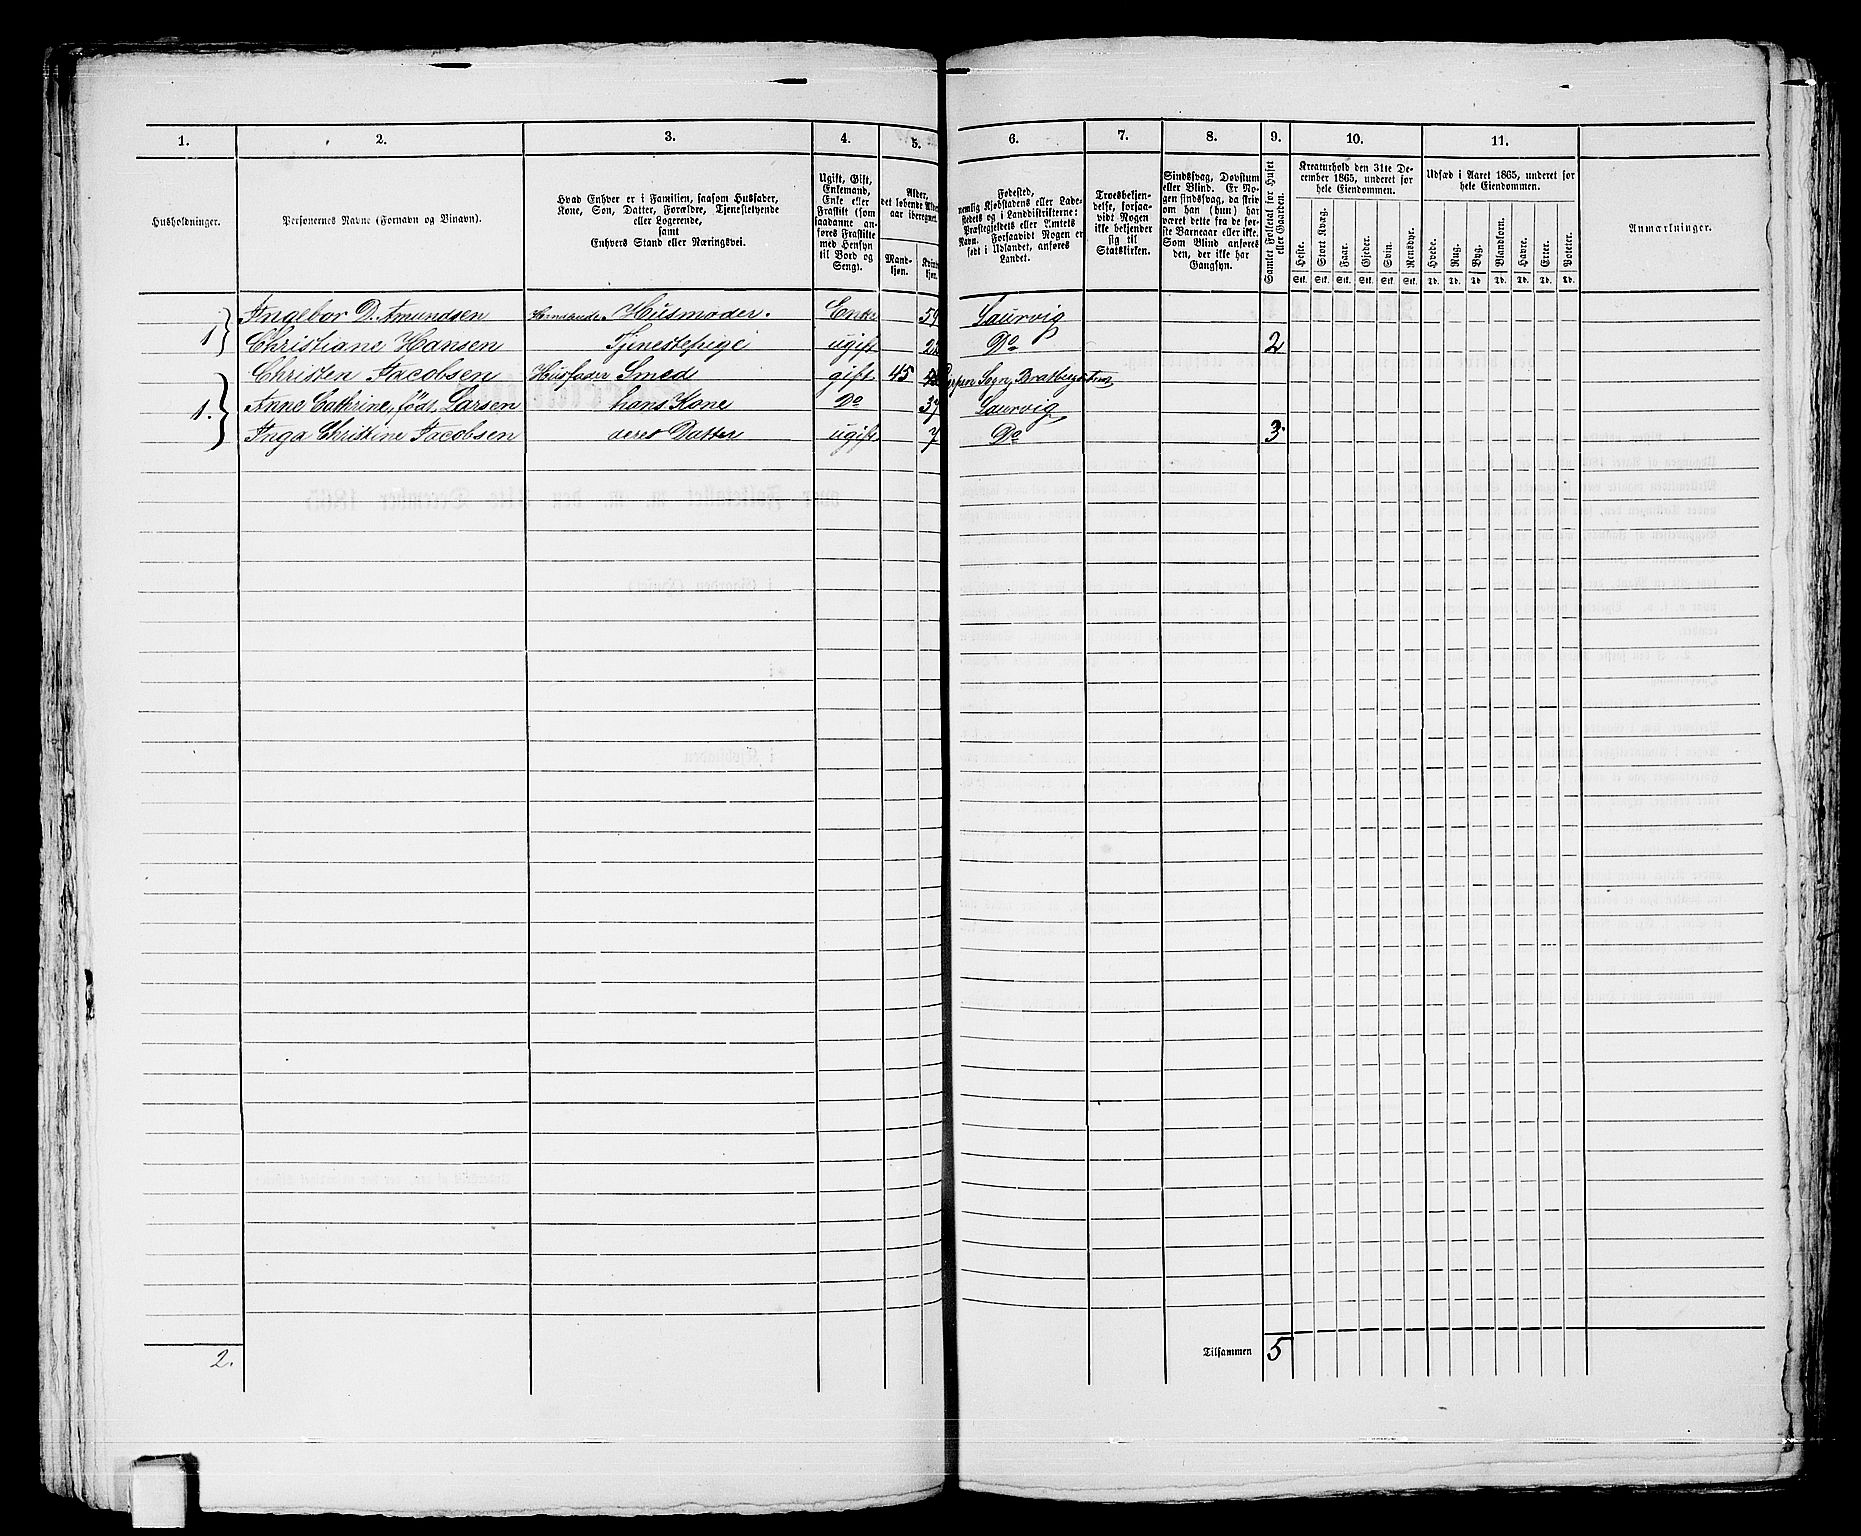 1. 2. 3. 4. 5. 6. 7. 8. 9. 10. 11.
Husholdninger.
Personernes Navne (Fornavn og Binavn).
Hvad Enhver er i Familien, saasom Husfader,
Kone, Søn, Datter, Forældre, Tjenestetyende
eller Logerende,
samt
Enhvers Stand eller Næringsvei.
Ugift, Gift,
Enkemand,
Enke eller
Fraskilt (som
saadanne anføres Fraskilte
med Hensyn
til Bord og
Seng).
Alder,
det løbende
aar iberegnet.
Mandkjøn.
Fødested,
nemlig Kjøbstadens eller Ladestedets og i Landdistrikterne:
Præstegjeldets eller Amtets
Navn. Forsaavidt Nogen er
født i Udlandet, anføres
Landet.
Troesbekjendelse, forsaavidt Nogen
ikke bekjender
sig til
Statskirken.
Sindssvag, Døvstum
eller Blind. Er Nogen sindssvag, da skrives
om han (hun) har
været dette fra de første Barneaar eller ikke.
Som Blind anføres
den, der ikke har
Gangsyn.
Samlet Folketal for Huset
eller Gaarden.
Kreaturhold den 31te December 1865, underet for
hele Eiendommen.
Heste. Stort Kvæg. Faar. Gjeder. Svin. Rensdyr.
Stk. Stk. Stk. Stk. Stk. Stk.
Udsæd i Aaret 1865, underet for
hele Eiendommen.
Hvede. Rug. Byg. Blandkorn. Havre. Erter. Poteter.
Td. Td. Td. Td. Td. Td. Td.
Anmærkninger.
1 Ingebor D. Amundsen Husmoder. Enke 59 Laurvig
Christiane Hansen Tjenestepige ugift 22 Do 2
Christen Jacobsen Husfader Smed gift 45 Sogn, Bratsberg Amt
1. Anne Cathrine, født Larsen hans Kone Do 37 Laurvig
Inga Christine Jacobsen deres Datter ugift 7 Do 3
2. Tilsammen 5